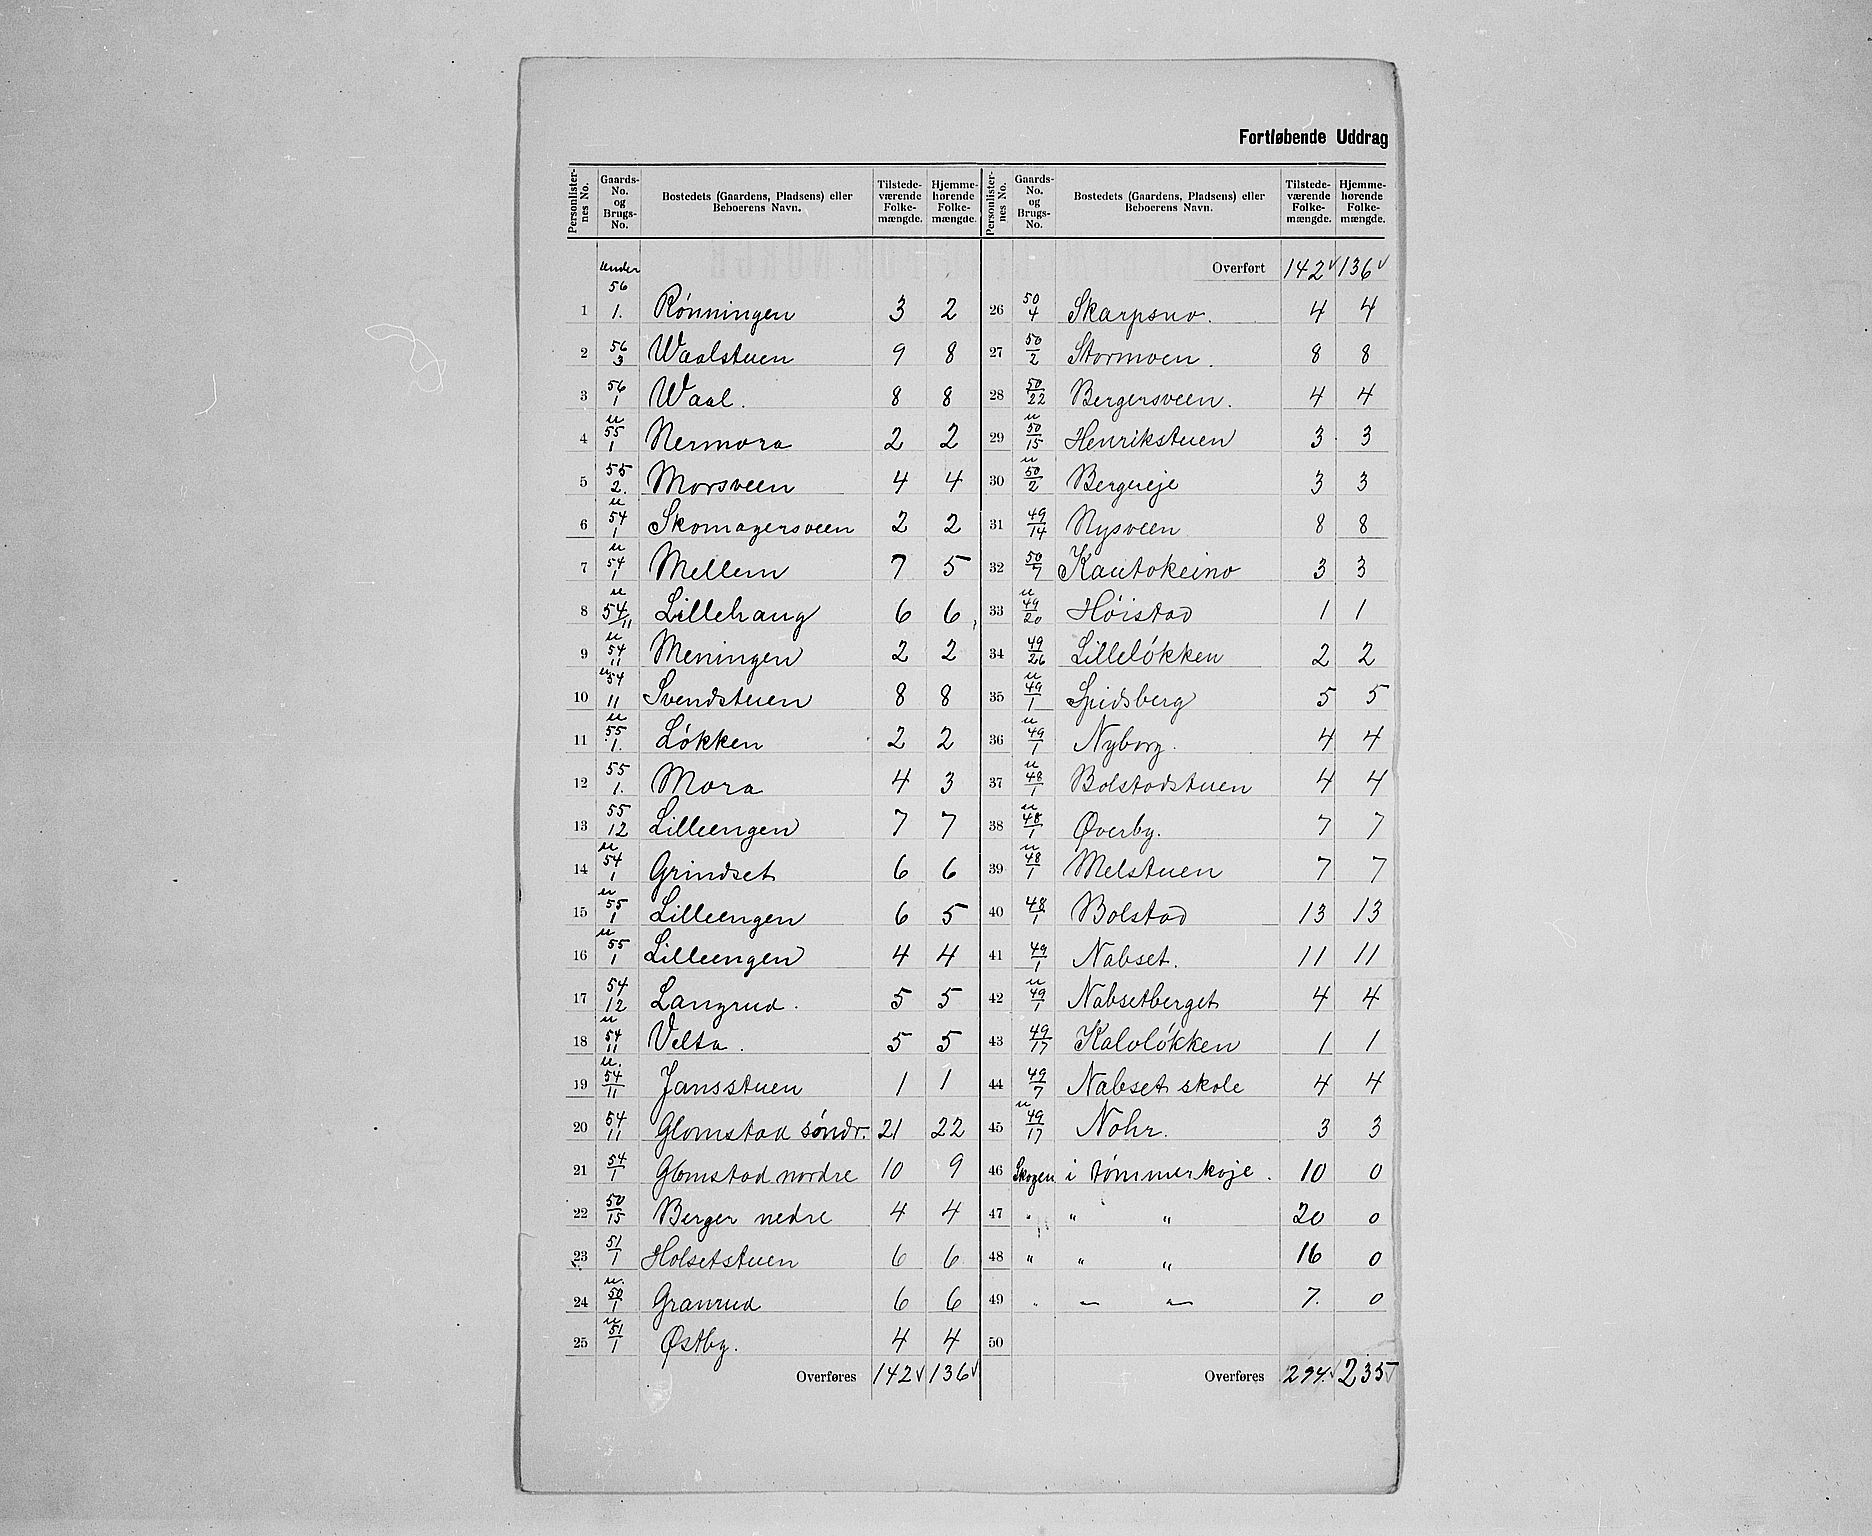 Fortløbende Uddrag
Personlister-nes No. | Gaards-No. og Brugs-No. | Bostedets (Gaardens, Pladsens) eller Beboerens Navn. | Tilstede-værende Folke-mængde. | Hjemme-hørende Folke-mængde.
under
1 | 56 1. | Rønningen | 3 | 2
2 | 56/3 | Waalstuen | 9 | 8
3 | 56/1 | Waal. | 8 | 8
4 | u 55/1 | Nermora | 2 | 2
5 | 55/2. | Morsveen | 4 | 4
6 | u 54/1 | Skomagersveen | 2 | 2
7 | u 54/1 | Mellem | 7 | 5
8 | u 54/11 | Lillehaug | 6 | 6
9 | u 54/11 | Meningen | 2 | 2
10 | u 54/11 | Svendstuen | 8 | 8
11 | u 55/1. | Løkken | 2 | 2
12 | 55/1. | Mora | 4 | 3
13 | 55/12 | Lilleengen | 7 | 7
14 | u 54/1 | Grindset | 6 | 6
15 | u 55/1 | Lilleengen | 6 | 5
16 | u 55/1 | Lilleengen | 4 | 4
17 | 54/12 | Langrud. | 5 | 5
18 | u 54/11 | Velta. | 5 | 5
19 | u. 54/11 | Jansstuen | 1 | 1
20 | 54/11 | Glomstad søndr. | 21 | 22
21 | 54/1 | Glomstad nordre | 10 | 9
22 | 50/15 | Berger nedre | 4 | 4
23 | 51/1 | Holsetstuen | 6 | 6
24 | u. 50/1 | Granrud | 6 | 6
25 | u 51/1 | Østby. | 4 | 4
Overføres | 142 | 136
Personlister-nes No. | Gaards-No. og Brugs-No. | Bostedets (Gaardens, Pladsens) eller Beboerens Navn. | Tilstede-værende Folke-mængde. | Hjemme-hørende Folke-mængde.
Overført | 142 | 136
26 | 50/4 | Skarpsno. | 4 | 4
27 | 50/2 | Stormoen. | 8 | 8
28 | 50/22 | Bergersveen. | 4 | 4
29 | u 50/15 | Henrikstuen | 3 | 3
30 | u 50/2 | Bergereje | 3 | 3
31 | 49/14 | Nysveen | 8 | 8
32 | 50/7 | Kautokeino | 3 | 3
33 | u 49/20 | Høistad | 1 | 1
34 | 49/26 | Lilleløkken | 2 | 2
35 | u 49/1 | Spidsberg | 5 | 5
36 | u 49/1 | Nyborg. | 4 | 4
37 | u 48/1 | Bolstadstuen | 4 | 4
38 | u 48/1 | Øverby. | 7 | 7
39 | u 48/1 | Melstuen | 7 | 7
40 | 48/1 | Bolstad | 13 | 13
41 | 49/1 | Nabset. | 11 | 11
42 | u 49/1 | Nabsetberget | 4 | 4
43 | 49/17 | Kalvløkken | 1 | 1
44 | 49/7 | Nabset skole | 4 | 4
45 | u 49/17 | Nohr. | 3 | 3
46 | Skogen | i tømmerkoje. | 10 | 0
47 | " | " " | 20 | 0
48 | " | " " | 16 | 0
49 | " | " " | 7. | 0
50
Overføres | 294. | 235